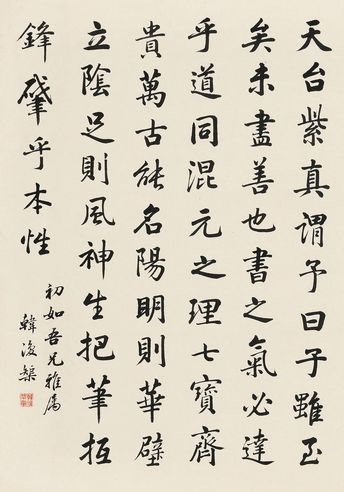 天台紫真謂予曰子雖至
矣未盡善也書之氣必達
乎道同混元之理七寶齊
貴萬古能名陽明則華壁
立陰足則風神生把筆抵
鋒肇乎本性
初如吾兄雅屬
韓復榘